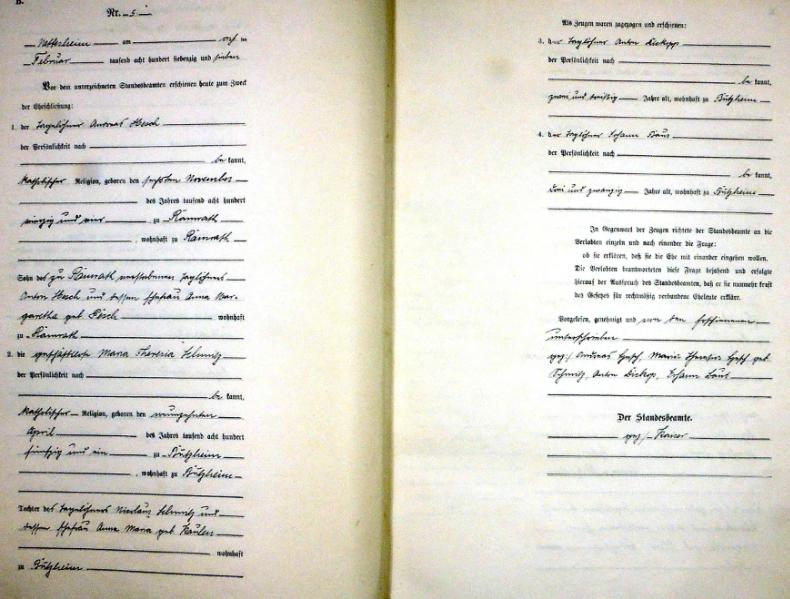 B.
Nr. 5
Nettesheim am
Februar tausend acht hundert siebenzig und sieben
Vor dem unterzeichneten Standesbeamten erschienen heute zum Zweck
der Eheschließung:
1. der Tagelöhner Andreas Hesch
der Persönlichkeit nach
be kannt,
katholischer Religion, geboren den sechsten November
des Jahres tausend acht hundert
vierzig und vier zu Ramrath
, wohnhaft zu Ramrath
Sohn des zu Ramrath verstorbenen Taglöhners
Anton Hesch und dessen Ehefrau Anna Mar-
garetha geb. wohnhaft
zu Ramrath
2. die geschäftslose Maria Theresia Schmitz
der Persönlichkeit nach
be kannt,
katholischer Religion, geboren den neunzehnten
April des Jahres tausend acht hundert
fünfzig und ein zu Bützheim
, wohnhaft zu Bützheim
Tochter des Tagelöhners Nicolaus Schmitz und
dessen Ehefrau Anna Maria geb. Kaulen
wohnhaft
zu Bützheim
Als Zeugen waren zugezogen und erschienen:
3. der Taglöhner Anton Dickopp
der Persönlichkeit nach
be kannt,
zwei und dreißig Jahre alt, wohnhaft zu Bützheim
4. der Taglöhner Johann Baus
der Persönlichkeit nach
be kannt,
drei und zwanzig Jahre alt, wohnhaft zu Bützheim
In Gegenwart der Zeugen richtete der Standesbeamte an die
Verlobten einzeln und nach einander die Frage:
ob sie erklären, daß sie die Ehe mit einander eingehen wollen.
Die Verlobten beantworteten diese Frage bejahend und erfolgte
hierauf der Ausspruch des Standesbeamten, daß er sie nunmehr kraft
des Gesetzes für rechtmäßig verbundene Eheleute erkläre.
Vorgelesen, genehmigt und von den Erschienenen
unterschrieben
gez: Andreas Hesch, Maria Theresia Hesch geb
Schmitz, Anton Dickop, Johann Baus
Der Standesbeamte.
gez: